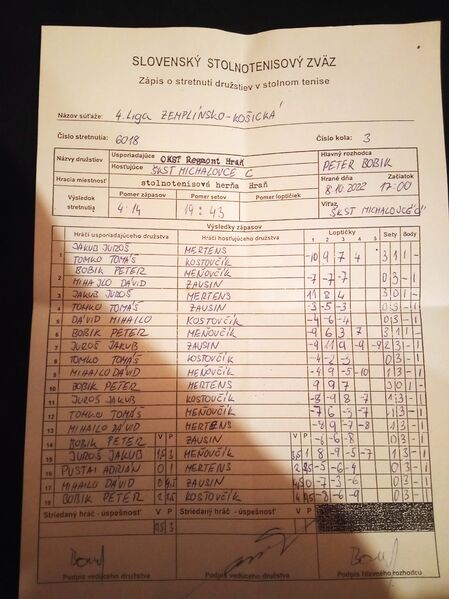 SLOVENSKÝ STOLNOTENISOVÝ ZVÄZ
Zápis o stretnutí družstiev v stolnom tenise
Názov súťaže: 4. Liga ZEMPLÍNSKO-KOŠICKÁ
Číslo stretnutia: 6018 Číslo kola: 3
Názvy družstiev Usporiadajúce OKST Regmont Hraň Hlavný rozhodca
Hosťujúce ŠKST MICHALOVCE C PETER BOBIK
Hracia miestnosť stolnotenisová herňa Hraň Hrané dňa Začiatok
8.10.2022 17:00
Výsledok stretnutia Pomer zápasov Pomer setov Pomer loptičiek Víťaz
4:14 19:43 ŠKST MICHALOVCE "C"
Výsledky zápasov
Hráči usporiadajúceho družstva Hráči hosťujúceho družstva Loptičky Sety Body
1 2 3 4 5
1 JAKUB JUROŠ MERTENS
TOMKO TOMÁŠ KOSTOVČÍK -10 9 7 4 3 1 1 -
2 BOBIK PETER MEŇOVČÍK
MIHAJLO DÁVID ZAUSIN -7 -7 -7 0 3 - 1
3 JAKUB JUROŠ MERTENS 11 8 4 3 0 1 -
4 TOMKO TOMÁŠ ZAUSIN -3 -5 -3 0 3 - 1
5 DÁVID MIHAJLO KOSTOVČÍK -4 -6 -4 0 3 - 1
6 BOBIK PETER MEŇOVČÍK -9 6 3 7 3 1 1 -
7 JUROŠ JAKUB ZAUSIN -9 11 9 -9 -9 2 3 - 1
8 TOMKO TOMÁŠ KOSTOVČÍK -4 -2 -3 0 3 - 1
9 MIHAJLO DÁVID MEŇOVČÍK
10 BOBIK PETER MERTENS 9 9 7 3 0 1 -
11 JUROŠ JAKUB KOSTOVČÍK -8 -9 8 -7 1 3 - 1
12 TOMKO TOMÁŠ MEŇOVČÍK -7 6 -3 -7 1 3 - 1
13 MIHAJLO DÁVID MERTENS -8 9 -7 -8 1 3 - 1
14 BOBIK PETER V P ZAUSIN V P -6 -6 -8 0 3 - 1
15 JUROŠ JAKUB MEŇOVČÍK 1 3 - 1
16 PUSTAI ADRIÁN 0 1 MERTENS -5 -6 -4 0 3 - 1
17 MIHAJLO DÁVID ZAUSIN
18 BOBIK PETER KOSTOVČÍK
Striedaný hráč - úspešnosť V P Striedaný hráč - úspešnosť V P
0,5 3
Podpis vedúceho družstva Podpis vedúceho družstva Podpis hlavného rozhodcu